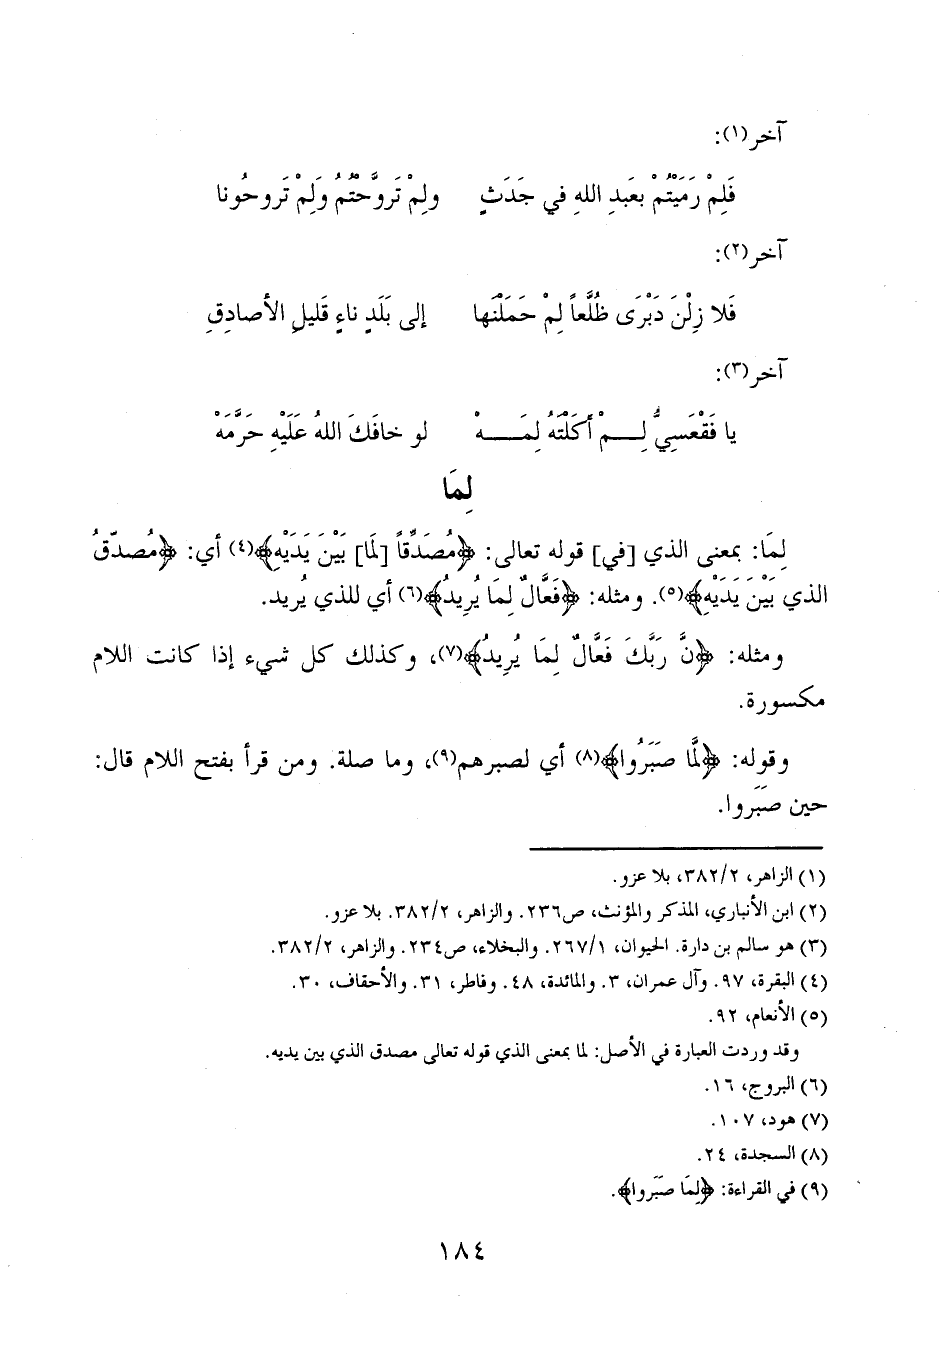 آخر(١):
فَلِمْ رَمَيْتُمْ بعَبدِ اللهِ في جَدَثٍ ولِمْ تَروَّحْتُمُ وَلِمْ تَروحُونا
آخر(٢):
فَلا زِلْنَ دَبْرَى ظُلَّعاً لِمْ حَمَلْنَها إلى بَلَدٍ ناءٍ قَليلِ الأصادِقِ
آخر(٣):
يا فَقْعَسِيُّ لِـــمْ أَكَلْتَهُ لِمَـــــهْ لو خافَكَ اللهُ عَلَيْهِ حَرَّمَهْ
لِمَا
لِمَا: بمعنى الذي [في] قوله تعالى: ﴿مُصَدِّقاً [لمَا] بَيْنَ يَدَيْهِ﴾(٤) أي: ﴿مُصدّقُ
الذي بَيْنَ يَدَيْهِ﴾(٥). ومثله: ﴿فَعَّالٌ لِمَا يُرِيدُ﴾(٦) أي للذي يُريد.
ومثله: ﴿نَّ رَبَّكَ فَعَّالٌ لِمَا يُرِيدُ﴾(٧)، وكذلك كل شيء إذا كانت اللام
مكسورة.
وقوله: ﴿لَمَّا صَبَرُوا﴾(٨) أي لصبرهم(٩)، وما صلة. ومن قرأ بفتح اللام قال:
حين صبَروا.
(١) الزاهر، ٣٨٢/٢، بلا عزو.
(٢) ابن الأنباري، المذكر والمؤنث، ص٢٣٦. والزاهر، ٣٨٢/٢. بلا عزو.
(٣) هو سالم بن دارة. الحيوان، ٢٦٧/١. والبخلاء، ص٢٣٤. والزاهر، ٣٨٢/٢.
(٤) البقرة، ٩٧. وآل عمران، ٣. والمائدة، ٤٨. وفاطر، ٣١. والأحقاف، ٣٠.
(٥) الأنعام، ٩٢.
وقد وردت العبارة في الأصل: لما بمعنى الذي قوله تعالى مصدق الذي بين يديه.
(٦) البروج، ١٦.
(٧) هود، ١٠٧.
(٨) السجدة، ٢٤.
(٩) في القراءة: ﴿لِمَا صَبَروا﴾.
١٨٤